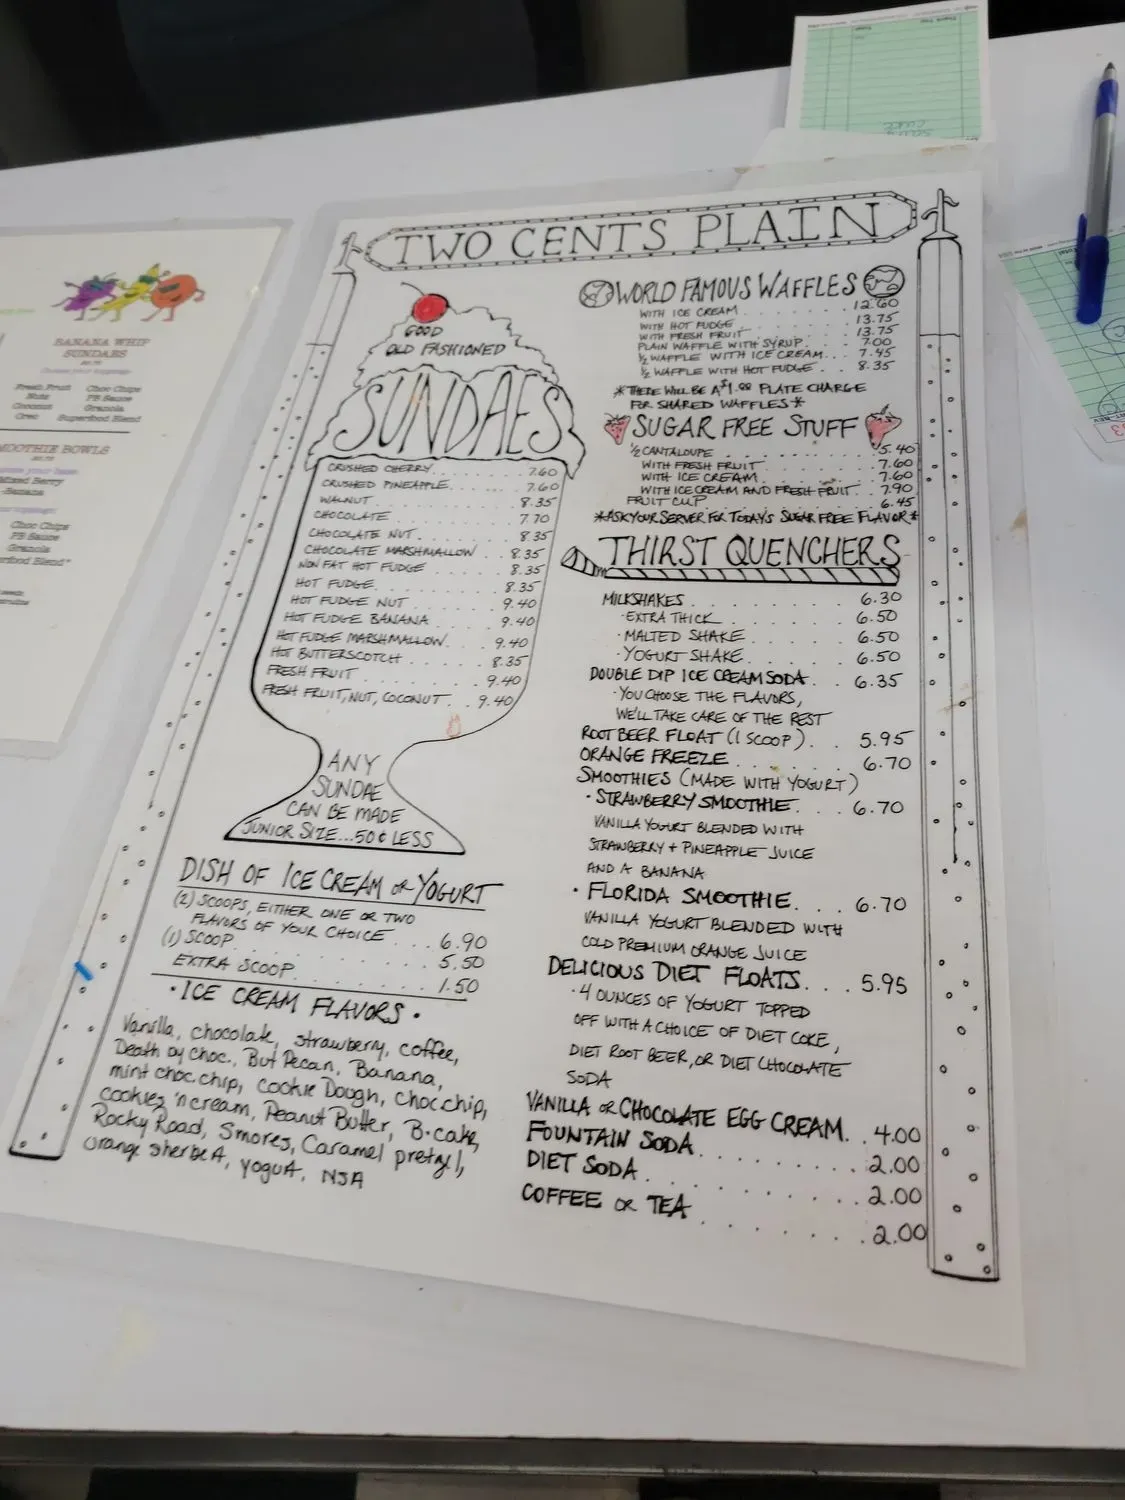 TWO CENTS PLAIN
GOOD
OLD FASHIONED
SUNDAES
CRUSHED CHERRY. . . . . . . . 7.60
CRUSHED PINEAPPLE. . . . . . 7.60
WALNUT. . . . . . . . . . 8.35
CHOCOLATE . . . . . . . . 7.70
CHOCOLATE NUT. . . . . . . 8.35
CHOCOLATE MARSHMALLOW . . 8.35
NON FAT HOT FUDGE . . . . . 8.35
HOT FUDGE. . . . . . . . . 8.35
HOT FUDGE NUT . . . . . . . 9.40
HOT FUDGE BANANA . . . . . 9.40
HOT FUDGE MARSHMALLOW. . . 9.40
HOT BUTTERSCOTCH . . . . . 8.35
FRESH FRUIT . . . . . . . . 9.40
FRESH FRUIT, NUT, COCONUT. . . 9.40
ANY
SUNDAE
CAN BE MADE
JUNIOR SIZE...50¢ LESS
DISH OF ICE CREAM OR YOGURT
(2) SCOOPS, EITHER ONE OR TWO
FLAVORS OF YOUR CHOICE . . . 6.90
(1) SCOOP. . . . . . . . . 5.50
EXTRA SCOOP. . . . . . . . 1.50
• ICE CREAM FLAVORS •
Vanilla, chocolate, strawberry, coffee,
Death by Choc., But Pecan, Banana,
mint choc.chip, Cookie Dough, choc chip,
cookies 'n cream, Peanut Butter, B-cake,
Rocky Road, Smores, Caramel pretzel,
orange sherbet, yogurt, NSA
WORLD FAMOUS WAFFLES
WITH ICE CREAM . . . . . . . 12.60
WITH HOT FUDGE . . . . . . . 13.75
WITH FRESH FRUIT . . . . . . 13.75
PLAIN WAFFLE WITH SYRUP. . . . 7.00
½ WAFFLE WITH ICE CREAM. . . 7.45
½ WAFFLE WITH HOT FUDGE. . . 8.35
*THERE WILL BE A $1.00 PLATE CHARGE
FOR SHARED WAFFLES*
SUGAR FREE STUFF
½ CANTALOUPE . . . . . . . . 5.40
WITH FRESH FRUIT . . . . . . 7.60
WITH ICE CREAM . . . . . . . 7.60
WITH ICE CREAM AND FRESH FRUIT. . 7.90
FRUIT CUP . . . . . . . . . 6.45
*ASK YOUR SERVER FOR TODAY'S SUGAR FREE FLAVOR*
THIRST QUENCHERS
MILKSHAKES . . . . . . . . 6.30
• EXTRA THICK . . . . . . . 6.50
• MALTED SHAKE . . . . . . 6.50
• YOGURT SHAKE. . . . . . 6.50
DOUBLE DIP ICE CREAM SODA. . . 6.35
• YOU CHOOSE THE FLAVORS,
WE'LL TAKE CARE OF THE REST
ROOT BEER FLOAT (1 SCOOP). . . 5.95
ORANGE FREEZE . . . . . . . 6.70
SMOOTHIES (MADE WITH YOGURT)
• STRAWBERRY SMOOTHIE. . . 6.70
VANILLA YOGURT BLENDED WITH
STRAWBERRY + PINEAPPLE JUICE
AND A BANANA
• FLORIDA SMOOTHIE. . . 6.70
VANILLA YOGURT BLENDED WITH
COLD PREMIUM ORANGE JUICE
DELICIOUS DIET FLOATS. . . 5.95
• 4 OUNCES OF YOGURT TOPPED
OFF WITH A CHOICE OF DIET COKE,
DIET ROOT BEER, OR DIET CHOCOLATE
SODA
VANILLA OR CHOCOLATE EGG CREAM. . 4.00
FOUNTAIN SODA. . . . . . . . 2.00
DIET SODA . . . . . . . . . 2.00
COFFEE OR TEA . . . . . . . 2.00
BANANA WHIP
SUNDAES
Fresh Fruit Choc Chips
Nuts PB Sauce
Coconut Granola
Oreo Superfood Blend
BOWLS
Banana
Choc Chips
PB Sauce
Granola